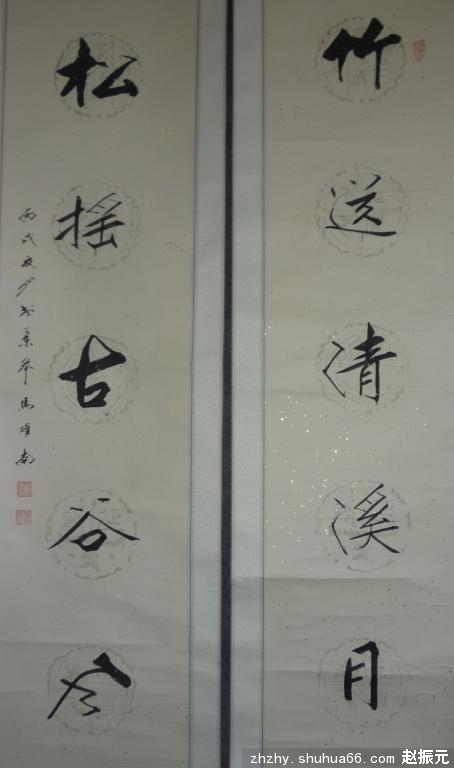 竹送清溪月
松摇古谷风
丙戌夏
马雄南
zhzhy.shuhua66.com 赵振元